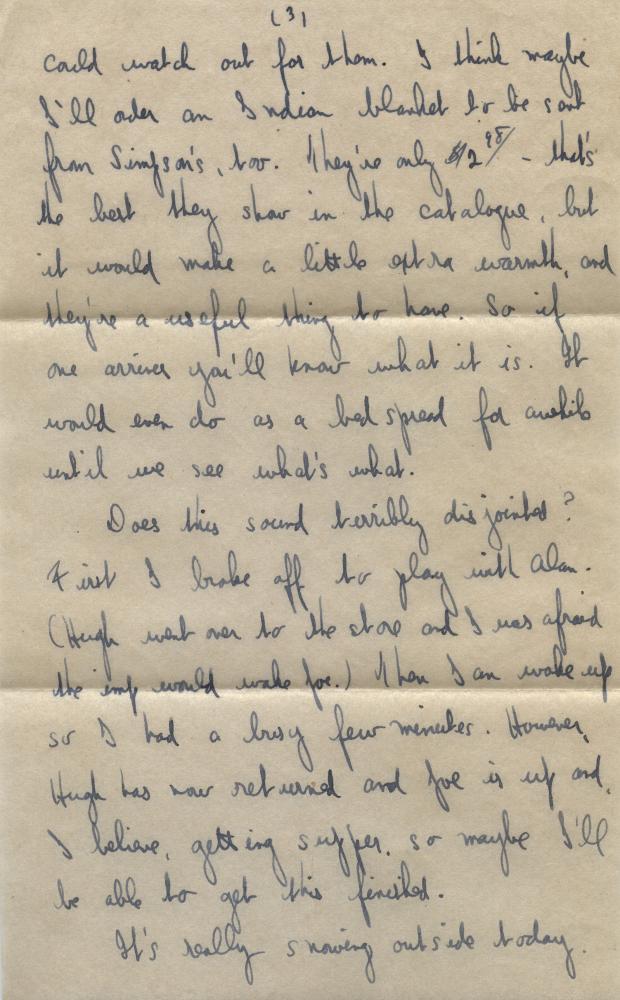 (3)
could watch out for them. I think maybe
I'll order an Indian blanket to be sent
from Simpson's, too. They're only $2.98/ - that's
the best they show in the catalogue, but
it would make a little extra warmth, and
they're a useful thing to have. So if
one arrives you'll know what it is. It
would even do as a bed spread for awhile
until we see what's what.
Does this sound terribly disjointed?
First I broke off to play with Alan.
(Hugh went over to the store and I was afraid
the imp would wake Joe.) Then Ian woke up
so I had a busy few minutes. However,
Hugh has now returned and Joe is up and,
I believe, getting supper, so maybe I'll
be able to get this finished.
It's really snowing outside today.